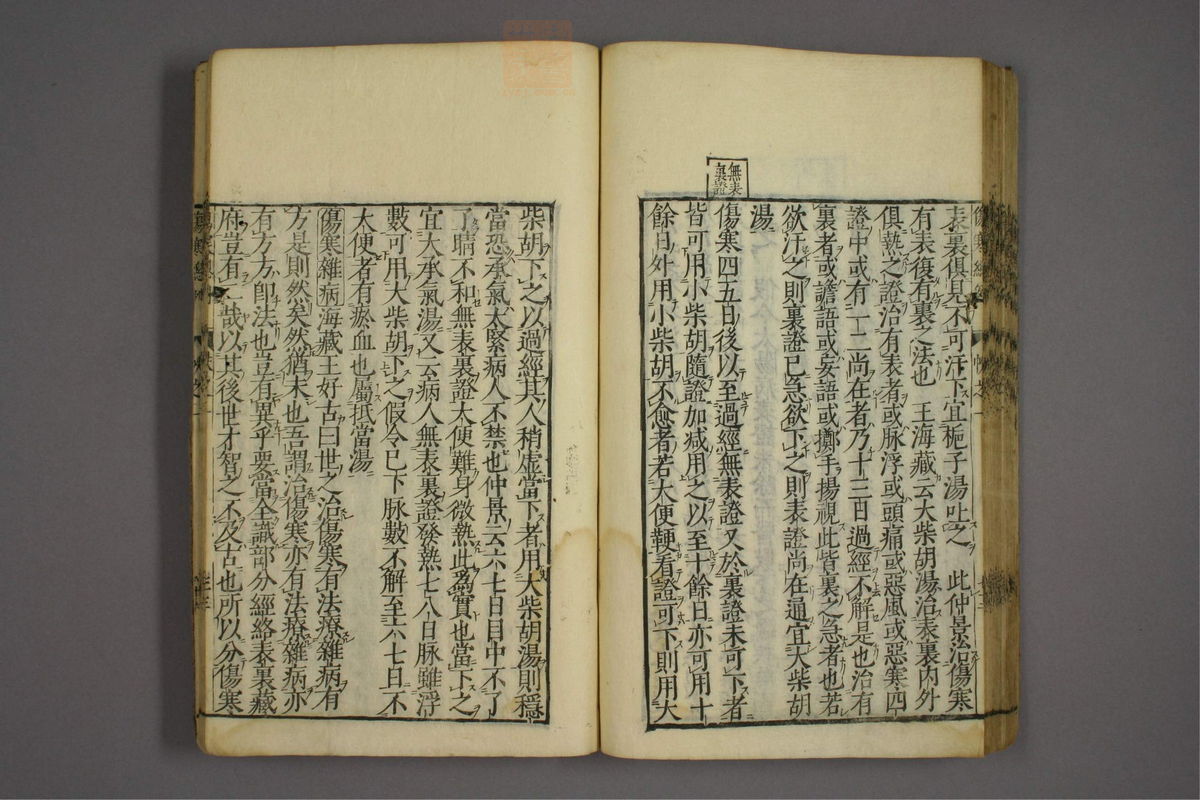 無表
裏證
表裏俱見不可汗下宜梔子湯吐之　此仲景治傷寒
有表復有裏之法也　王海藏云大柴胡湯治表裏內外
俱熱之證治有表者或脉浮或頭痛或惡風或惡寒四
證中或有一二尚在者乃十三日過經不解是也治有
裏者或譫語或妄語或擲手揚視此皆裏之急者也若
欲汗之則裏證已急欲下之則表證尚在通宜大柴胡
湯
傷寒四五日後以至過經無表證又於裏證未可下者
皆可用小柴胡隨證加减用之以至十餘日亦可用十
餘日外用小柴胡不愈者若大便鞕看證可下則用大
柴胡下之以過經其人稍虛當下者用大柴胡湯則穩
當恐承氣太緊病人不禁也仲景云六七日目中不了
了睛不和無表裏證大便難身微熱此爲實也當下之
宜大承氣湯又云病人無表裏證發熱七八日脉雖浮
數可用大柴胡下之假令已下脉數不解至六七日不
大便者有瘀血也屬抵當湯
傷寒雜病海藏王好古曰世之治傷寒有法療雜病有
方是則然矣然猶未也吾謂治傷寒亦有法療雜病亦
有方方卽法也豈有異乎要當全識部分經絡表裏藏
府豈有二哉以其後世才智之不及古也所以分傷寒